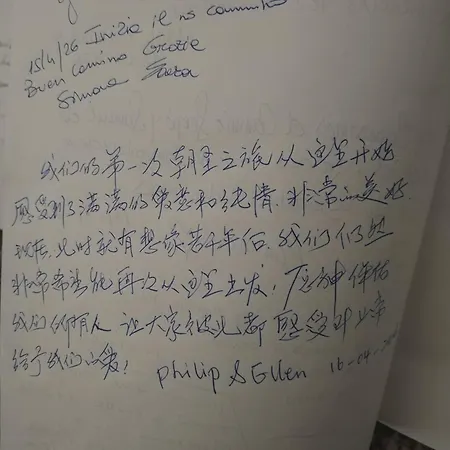 15/4/26 Inizia il ns cammino
Buen camino Grazie
Simona
我们的第一次朝圣之旅从这里开始
感受到了满满的善意和纯情.非常的美好.
现在,此时就有想象若千年后.我们仍然
非常希望能再次从这里出发!愿神保佑
我们所有人 让大家彼此都感受到上帝
给予我们的爱!
Philip & Ellen 16-04-